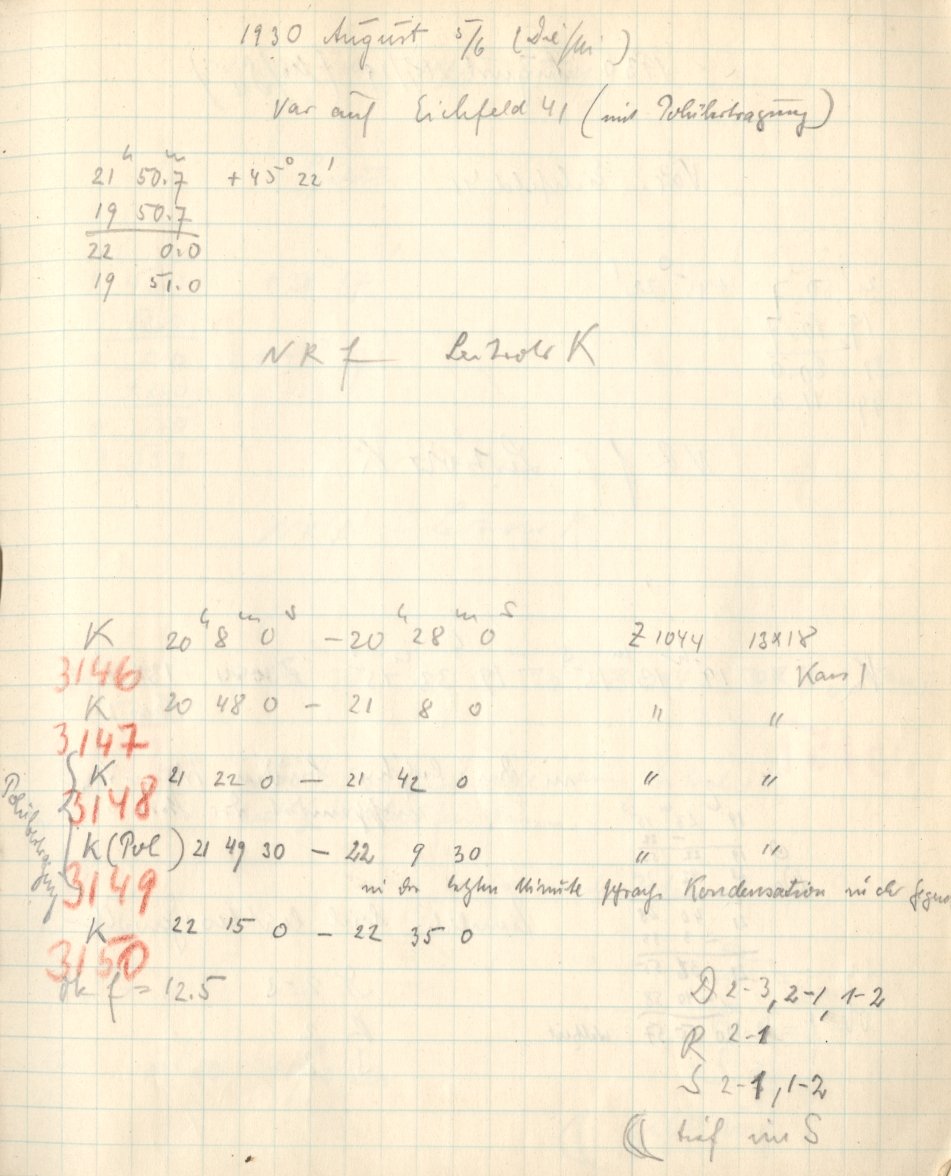 1930 August 5/6 (Die/Mi)
Var auf Eichfeld 41 (mit Polübertragung)
21 h 50.7 m +45° 22'
19 50.7
22 0.0
19 51.0
NR f Leitrohr K
K 20 h 8 m 0 s – 20 h 28 m 0 s Z 1044 13x18
3146 Kass 1
K 20 48 0 – 21 8 0 " "
3147
K 21 22 0 – 21 42 0 " "
3148
Polübertragung
K (Pol) 21 49 30 – 22 9 30 " "
3149 in der letzten Minute Kondensation in der
K 22 15 0 – 22 35 0
3150
f = 12.5
D 2-3, 2-1, 1-2
R 2-1
S 2-1, 1-2
tief im S